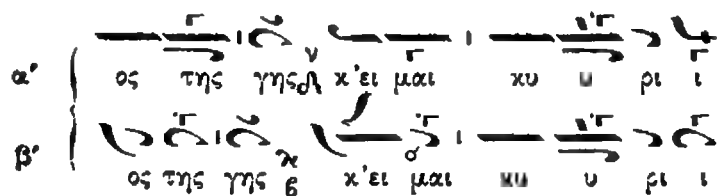 α' ος της γης κ'ει μαι κυ υ ρι ι
β' ος της γης κ'ει μαι κυ υ ρι ι